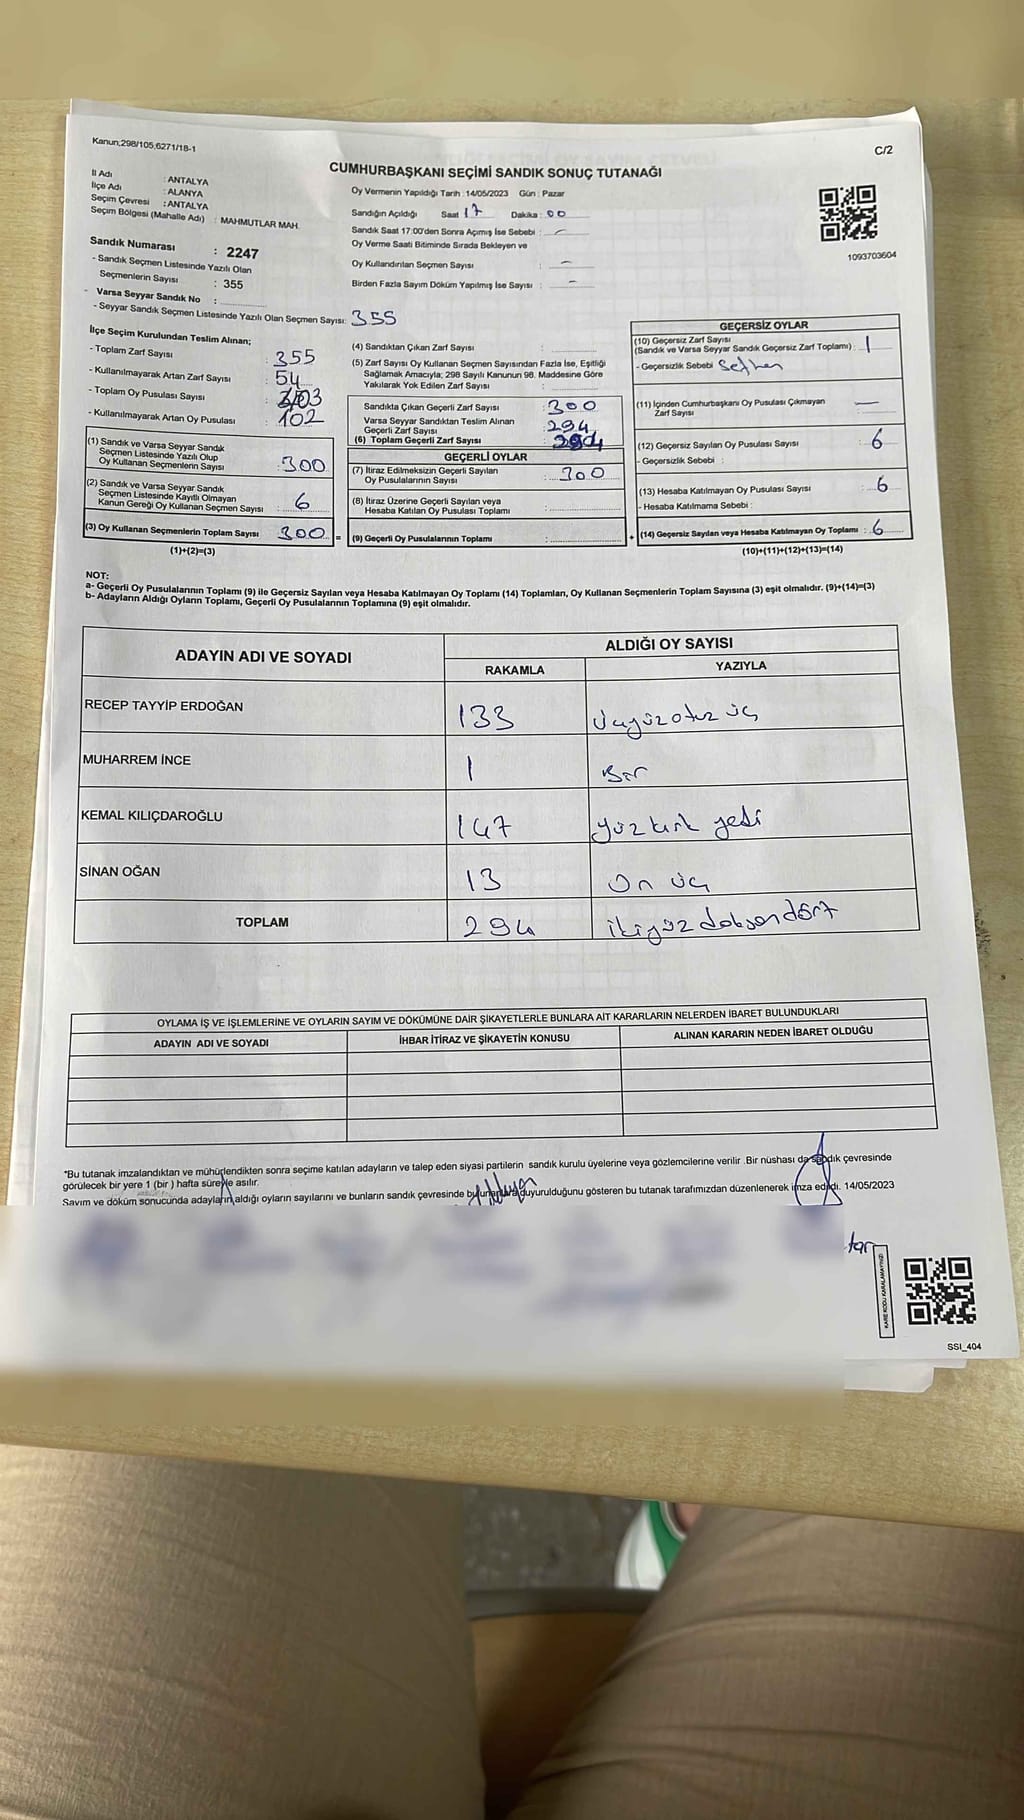 Kanun;298/105,6271/18-1
C/2
CUMHURBAŞKANI SEÇİMİ SANDIK SONUÇ TUTANAĞI
İl Adı : ANTALYA
İlçe Adı : ALANYA
Seçim Çevresi : ANTALYA
Seçim Bölgesi (Mahalle Adı) : MAHMUTLAR MAH.
Oy Vermenin Yapıldığı Tarih : 14/05/2023 Gün : Pazar
Sandığın Açıldığı Saat 17 Dakika : 00
Sandık Saat 17:00'den Sonra Açımış İse Sebebi : -
Oy Verme Saati Bitiminde Sırada Bekleyen ve
Oy Kullandırılan Seçmen Sayısı : -
Birden Fazla Sayım Döküm Yapılmış İse Sayısı : -
1093703604
Sandık Numarası : 2247
- Sandık Seçmen Listesinde Yazılı Olan
Seçmenlerin Sayısı : 355
- Varsa Seyyar Sandık No :
- Seyyar Sandık Seçmen Listesinde Yazılı Olan Seçmen Sayısı: 355
İlçe Seçim Kurulundan Teslim Alınan;
- Toplam Zarf Sayısı : 355
- Kullanılmayarak Artan Zarf Sayısı : 54
- Toplam Oy Pusulası Sayısı :
- Kullanılmayarak Artan Oy Pusulası : 102
(1) Sandık ve Varsa Seyyar Sandık
Seçmen Listesinde Yazılı Olup
Oy Kullanan Seçmenlerin Sayısı : 300
(2) Sandık ve Varsa Seyyar Sandık
Seçmen Listesinde Kayıtlı Olmayan
Kanun Gereği Oy Kullanan Seçmen Sayısı : 6
(3) Oy Kullanan Seçmenlerin Toplam Sayısı : 300
(1)+(2)=(3)
=
(4) Sandıktan Çıkan Zarf Sayısı :
(5) Zarf Sayısı Oy Kullanan Seçmen Sayısından Fazla İse, Eşitliği
Sağlamak Amacıyla; 298 Sayılı Kanunun 98. Maddesine Göre
Yakılarak Yok Edilen Zarf Sayısı :
Sandıkta Çıkan Geçerli Zarf Sayısı : 300
Varsa Seyyar Sandıktan Teslim Alınan
Geçerli Zarf Sayısı : 294
(6) Toplam Geçerli Zarf Sayısı : 294
GEÇERLİ OYLAR
(7) İtiraz Edilmeksizin Geçerli Sayılan
Oy Pusulalarının Sayısı : 300
(8) İtiraz Üzerine Geçerli Sayılan veya
Hesaba Katılan Oy Pusulası Toplamı :
(9) Geçerli Oy Pusulalarının Toplamı :
+
GEÇERSİZ OYLAR
(10) Geçersiz Zarf Sayısı
(Sandık ve Varsa Seyyar Sandık Geçersiz Zarf Toplamı) : 1
- Geçersizlik Sebebi
(11) İçinden Cumhurbaşkanı Oy Pusulası Çıkmayan
Zarf Sayısı : -
(12) Geçersiz Sayılan Oy Pusulası Sayısı : 6
- Geçersizlik Sebebi :
(13) Hesaba Katılmayan Oy Pusulası Sayısı : 6
- Hesaba Katılmama Sebebi :
(14) Geçersiz Sayılan veya Hesaba Katılmayan Oy Toplamı : 6
(10)+(11)+(12)+(13)=(14)
NOT:
a- Geçerli Oy Pusulalarının Toplamı (9) ile Geçersiz Sayılan veya Hesaba Katılmayan Oy Toplamı (14) Toplamları, Oy Kullanan Seçmenlerin Toplam Sayısına (3) eşit olmalıdır. (9)+(14)=(3)
b- Adayların Aldığı Oyların Toplamı, Geçerli Oy Pusulalarının Toplamına (9) eşit olmalıdır.
ADAYIN ADI VE SOYADI
ALDIĞI OY SAYISI
RAKAMLA YAZIYLA
RECEP TAYYİP ERDOĞAN 133 üçyüzotuz üç
MUHARREM İNCE 1 Bir
KEMAL KILIÇDAROĞLU 147 yüzkırk yedi
SİNAN OĞAN 13 On üç
TOPLAM 294 ikiyüzdoksandört
OYLAMA İŞ VE İŞLEMLERİNE VE OYLARIN SAYIM VE DÖKÜMÜNE DAİR ŞİKAYETLERLE BUNLARA AİT KARARLARIN NELERDEN İBARET BULUNDUKLARI
ADAYIN ADI VE SOYADI İHBAR İTİRAZ VE ŞİKAYETİN KONUSU ALINAN KARARIN NEDEN İBARET OLDUĞU
*Bu tutanak imzalandıktan ve mühürlendikten sonra seçime katılan adayların ve talep eden siyasi partilerin sandık kurulu üyelerine veya gözlemcilerine verilir .Bir nüshası da sandık çevresinde
görülecek bir yere 1 (bir ) hafta süreyle asılır.
Sayım ve döküm sonucunda adayların aldığı oyların sayılarını ve bunların sandık çevresinde bulunanlara duyurulduğunu gösteren bu tutanak tarafımızdan düzenlenerek imza edildi. 14/05/2023
KARE KODU KARALAMAYINIZ!
SSI_404